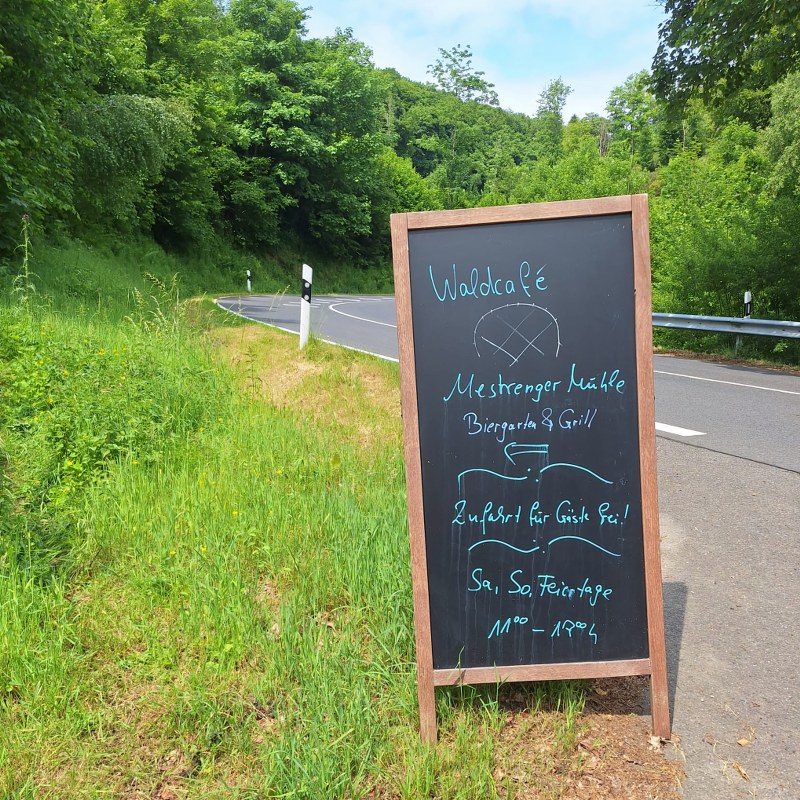 Waldcafé
Mestrenger Mühle
Biergarten & Grill
Zufahrt für Gäste frei!
Sa, So, Feiertage
11⁰⁰ - 17⁰⁰ h